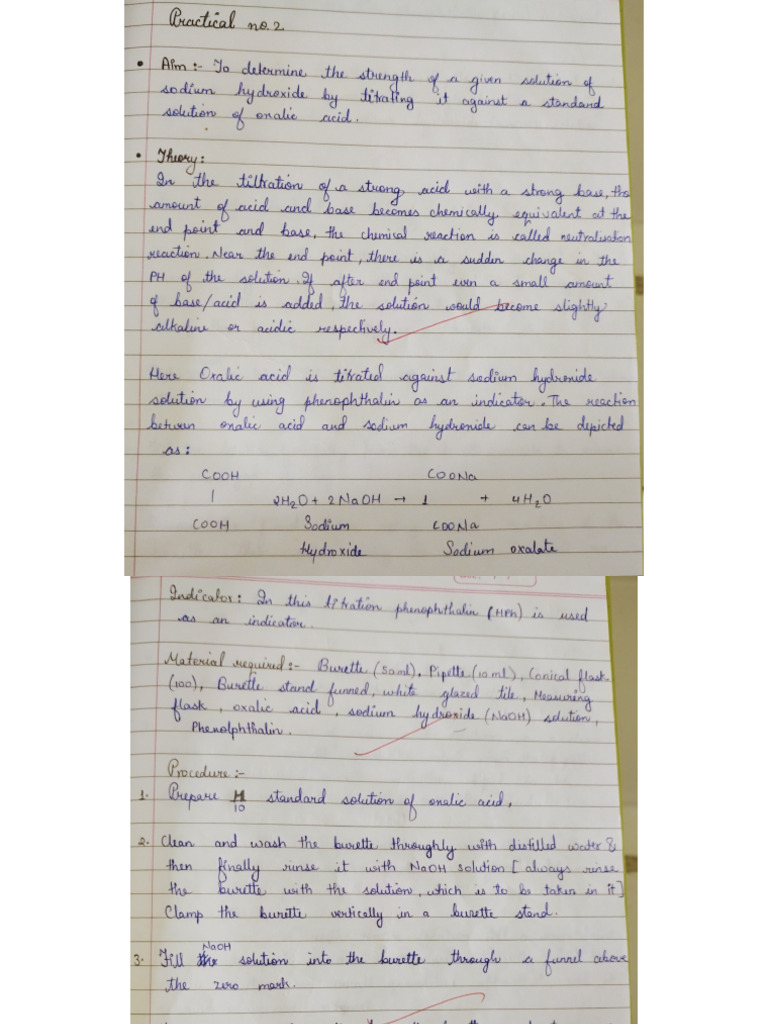 Practical no. 2
• Aim :- To determine the strength of a given solution of
sodium hydroxide by titrating it against a standard
solution of oxalic acid.
• Theory:
In the titration of a strong acid with a strong base, the
amount of acid and base becomes chemically equivalent at the
end point and base, the chemical reaction is called neutralisation
reaction. Near the end point, there is a sudden change in the
PH of the solution. If after end point even a small amount
of base/acid is added, the solution would become slightly
alkaline or acidic respectively.
Here Oxalic acid is titrated against sodium hydroxide
solution by using phenophthalin as an indicator. The reaction
between oxalic acid and sodium hydroxide can be depicted
as:
COOH COONa
| 2H2O + 2NaOH → | + 4H2O
COOH Sodium COONa
Hydroxide Sodium oxalate
Indicator: In this titration phenophthalin (HPh) is used
as an indicator.
Material required:- Burette (50ml), Pipette (10ml), Conical flask
(100), Burette stand funned, white glazed tile, Measuring
flask, oxalic acid, sodium hydroxide (NaOH) solution,
Phenolphthalin.
Procedure :-
1. Prepare M/10 standard solution of oxalic acid,
2. Clean and wash the burette throughly with distilled water &
then finally rinse it with NaOH solution [always rinse
the burette with the solution, which is to be taken in it]
Clamp the burette vertically in a burette stand.
3. Fill NaOH solution into the burette through a funnel above
the zero mark.